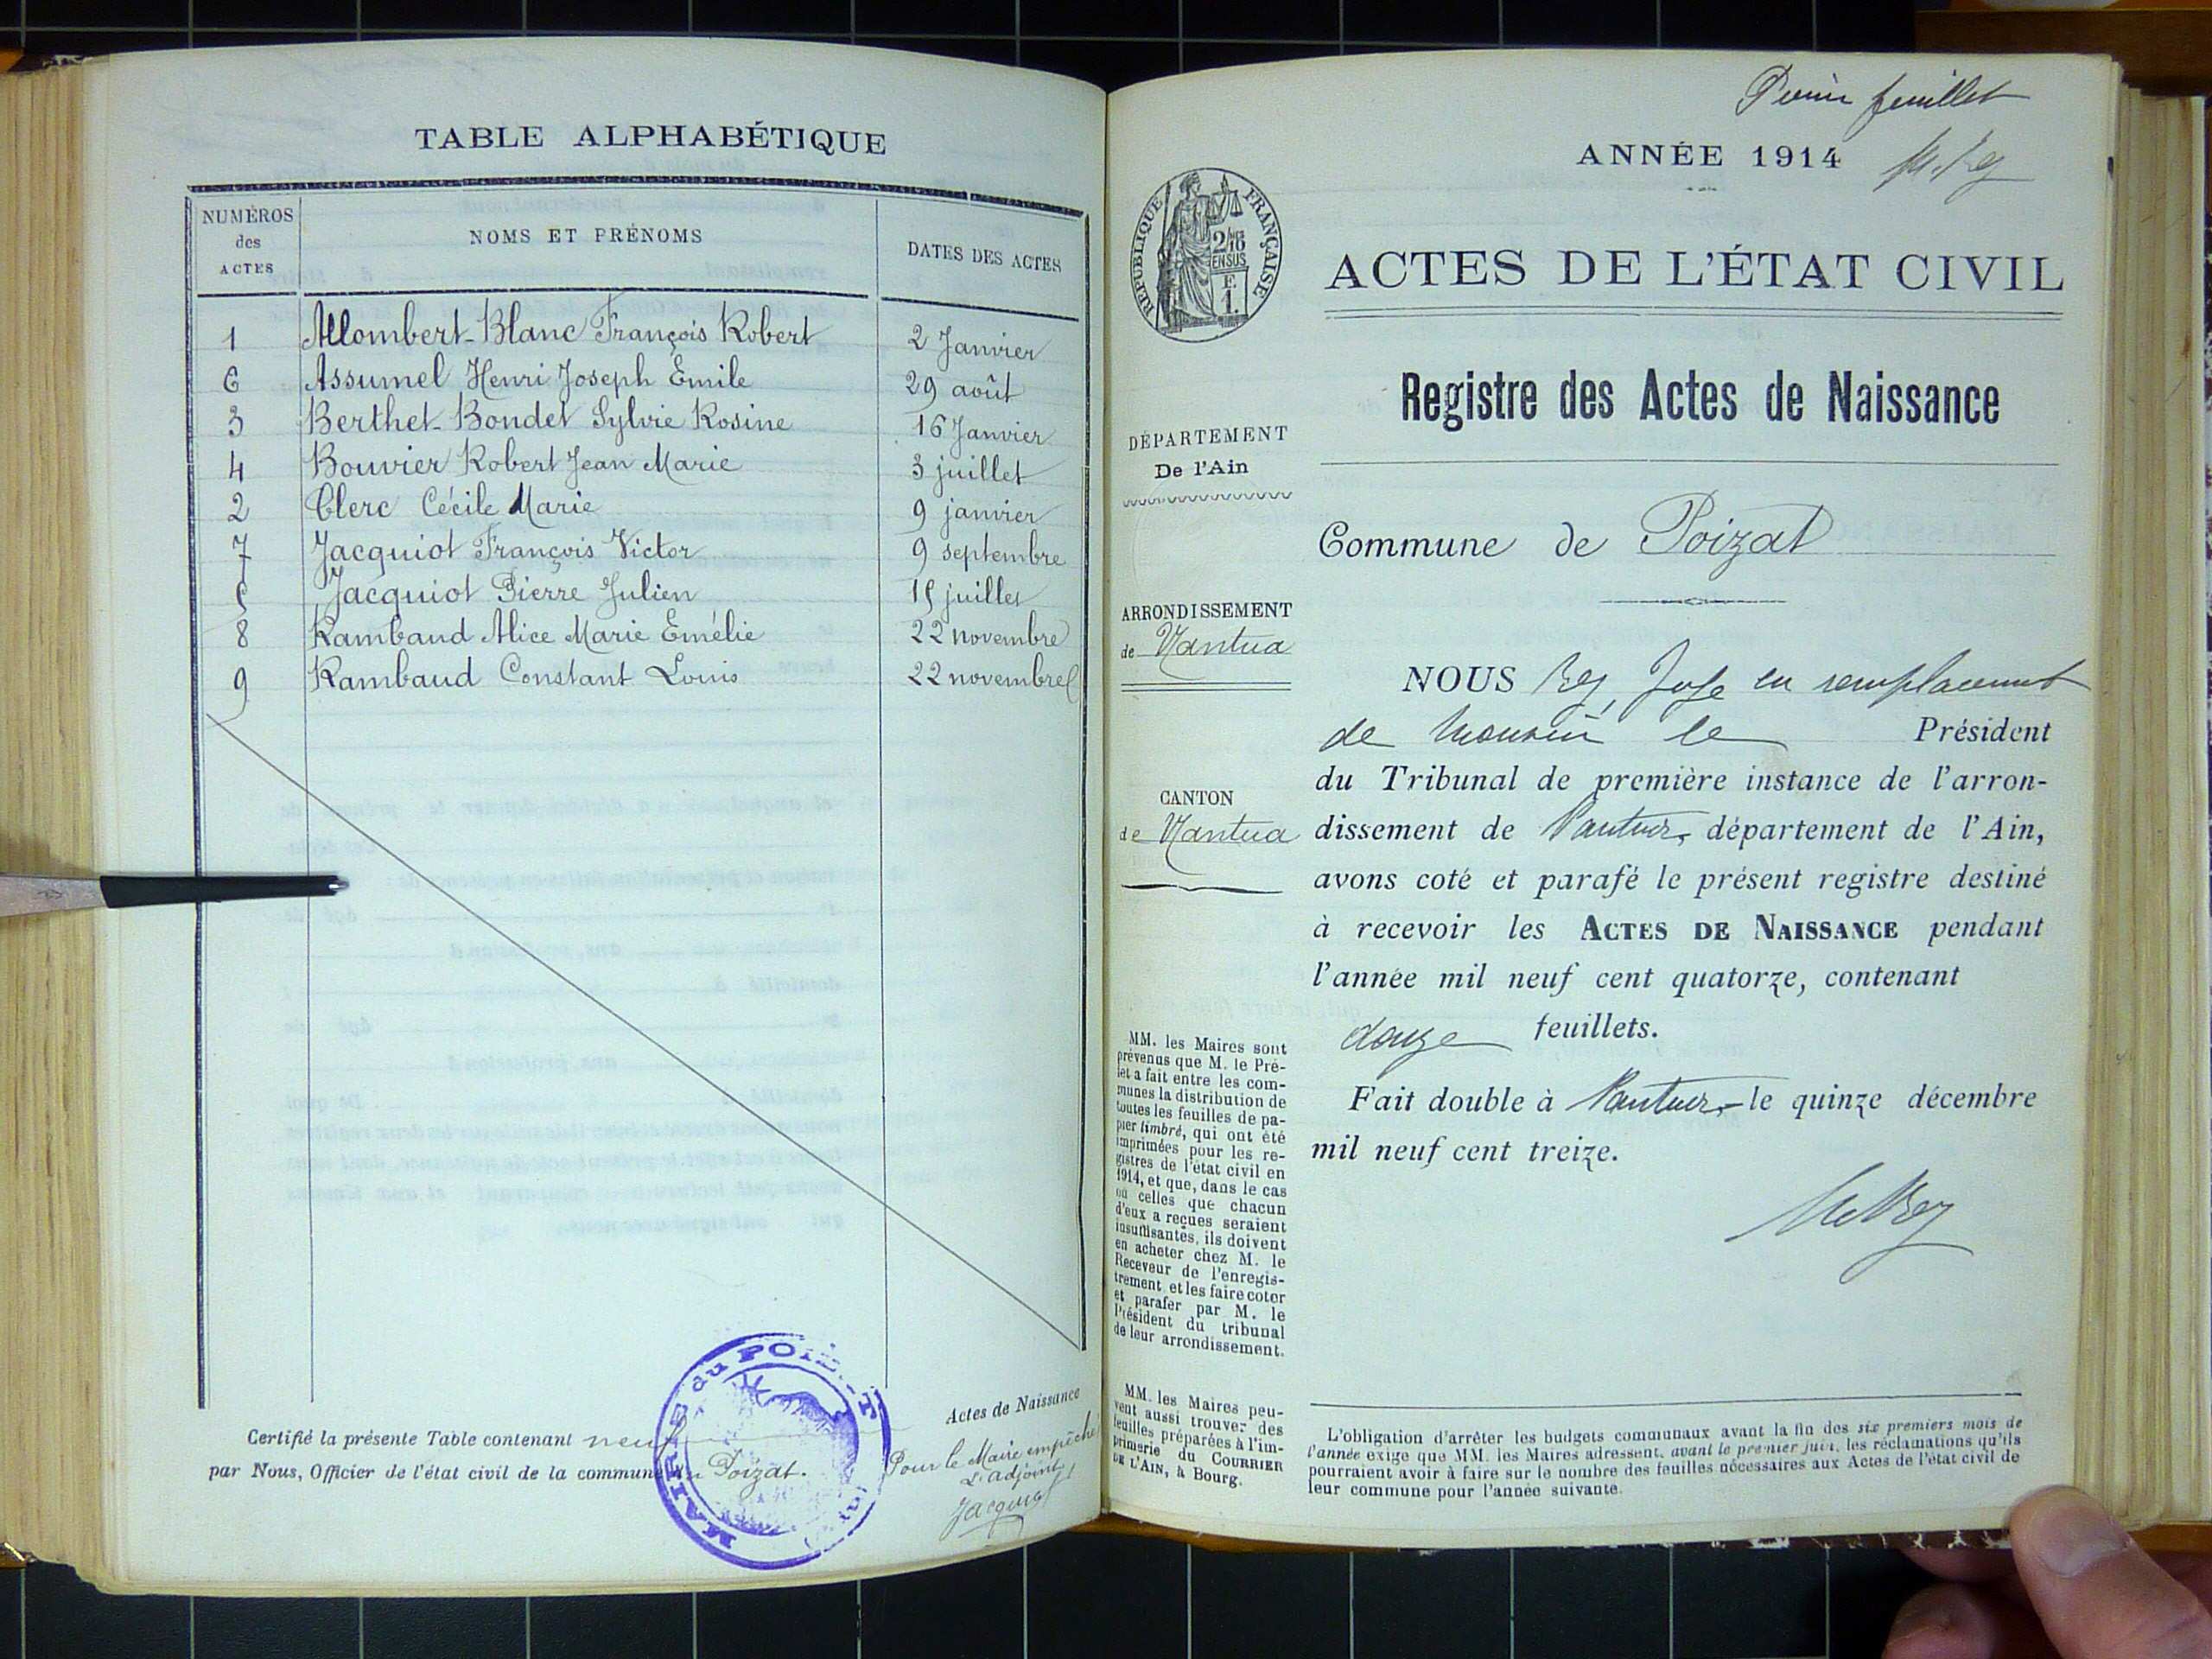 TABLE ALPHABÉTIQUE
NUMÉROS des ACTES
NOMS ET PRÉNOMS
DATES DES ACTES
1 Allombert-Blanc François Robert 2 Janvier
6 Assumel Henri Joseph Emile 29 août
3 Berthet-Bondet Sylvie Rosine 16 Janvier
4 Bouvier Robert Jean Marie 3 juillet
2 Clerc Cécile Marie 9 janvier
7 Jacquiot François Victor 9 septembre
5 Jacquiot Pierre Julien 15 juillet
8 Rambaud Alice Marie Emélie 22 novembre
9 Rambaud Constant Louis 22 novembre
Certifié la présente Table contenant neuf Actes de Naissance
par Nous, Officier de l'état civil de la commune du Poizat.
Pour le Maire empêché
L'adjoint
Jacquiot
MAIRIE du POIZAT
(Ain)
Premier feuillet
ANNÉE 1914
RÉPUBLIQUE FRANÇAISE
2/10
EN SUS
F.
1.
ACTES DE L'ÉTAT CIVIL
Registre des Actes de Naissance
DÉPARTEMENT
De l'Ain
ARRONDISSEMENT
de Nantua
CANTON
de Nantua
MM. les Maires sont
prévenus que M. le Pré-
fet a fait entre les com-
munes la distribution de
toutes les feuilles de pa-
pier timbré, qui ont été
imprimées pour les re-
gistres de l'état civil en
1914, et que, dans le cas
où celles que chacun
d'eux a reçues seraient
insuffisantes, ils doivent
en acheter chez M. le
Receveur de l'enregis-
trement et les faire coter
et parafer par M. le
Président du tribunal
de leur arrondissement.
MM. les Maires peu-
vent aussi trouver des
feuilles préparées à l'im-
primerie du COURRIER
DE L'AIN, à Bourg.
Commune de Poizat
NOUS Rey, Juge en remplacement
de Monsieur le Président
du Tribunal de première instance de l'arron-
dissement de Nantua, département de l'Ain,
avons coté et parafé le présent registre destiné
à recevoir les ACTES DE NAISSANCE pendant
l'année mil neuf cent quatorze, contenant
douze feuillets.
Fait double à Nantua, le quinze décembre
mil neuf cent treize.
L'obligation d'arrêter les budgets communaux avant la fin des six premiers mois de
l'année exige que MM. les Maires adressent, avant le premier juin, les réclamations qu'ils
pourraient avoir à faire sur le nombre des feuilles nécessaires aux Actes de l'état civil de
leur commune pour l'année suivante.